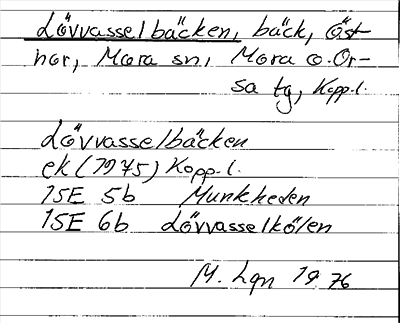 Lövvasselbäcken, bäck, Öst-
nor, Mora sn, Mora o. Or-
sa tg, Kopp.l.
Lövvasselbäcken
ek (1975) Kopp.l.
15E 5b Munkheden
15E 6b Lövvasselkölen
M. Lgn 1976